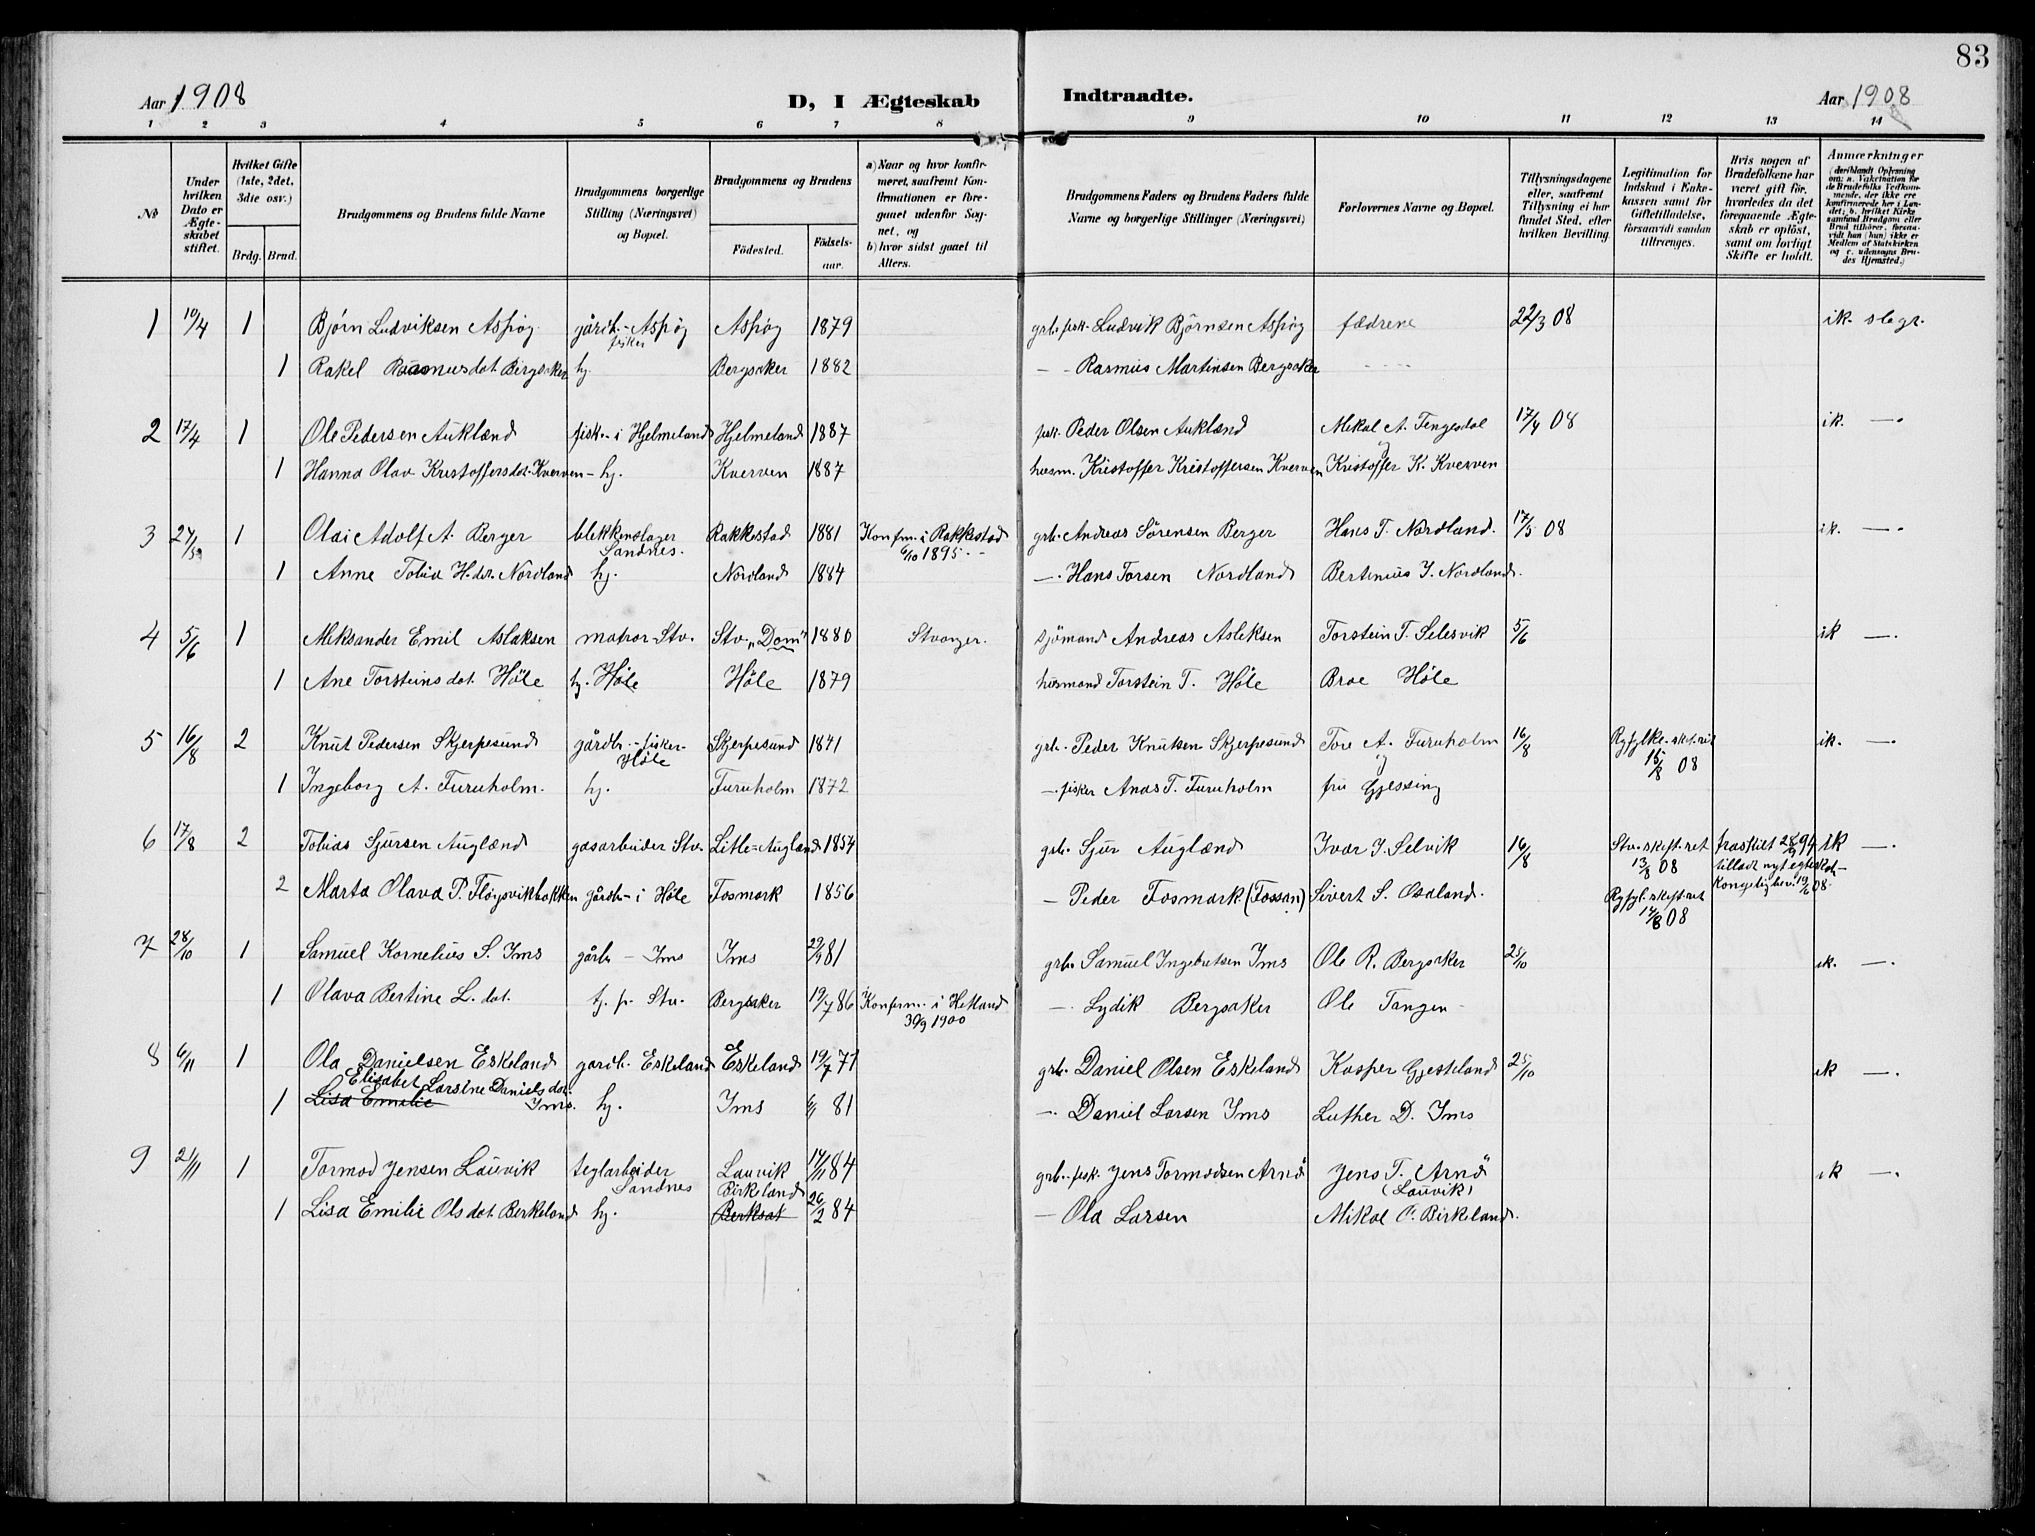 83
Aar 1908 D, I Ægteskab Indtraadte. Aar 1908
1 2 3 4 5 6 7 8 9 10 11 12 13 14
No
Under hvilken Dato er Ægteskabet stiftet.
Hvilket Gifte (1ste, 2det, 3die osv.)
Brdg. Brud.
Brudgommens og Brudens fulde Navne
Brudgommens borgerlige Stilling (Næringsvei) og Bopæl.
Brudgommens og Brudens
Fødested. Fødselsaar.
a) Naar og hvor konfirmeret, saafremt Konfirmationen er foregaaet udenfor Sognet, og
b) hvor sidst gaaet til Alters.
Brudgommens Faders og Brudens Faders fulde Navne og borgerlige Stillinger (Næringsvei)
Forlovernes Navne og Bopæl.
Tillysningsdagene eller, saafremt Tillysning ei har fundet Sted, efter hvilken Bevilling
Legitimation for Indskud i Enkekassen samt for Giftetilladelse, forsaavidt saadan tiltrænges.
Hvis nogen af Brudefolkene har været gift før, hvorledes da det foregaaende Ægteskab er opløst, samt om lovligt Skifte er holdt.
Anmærkninger (deriblandt Oplysning om: a. Vakcination for de Brudefolks Vedkommende, der ikke ere konfirmerede her i Landet; b. hvilket Kirkesamfund Brudgom eller Brud tilhører, forsaavidt han (hun) ikke er Medlem af Statskirken og c. udensogns Brudes Hjemsted.)
1 10/4 1 Bjørn Ludviksen Aspøy gårdb.-Aspøy fisker Aspøy 1879 grb. fisk. Ludvik Bjørnsen Aspøy fædrene 22/3 08 ik. slegt.
1 Rakel Rasmusdot Bergsaker hj. Bergsaker 1882 - - Rasmus Martinsen Bergsaker - - - -
2 17/4 1 Ole Pedersen Aukland fisk. - i Hjelmeland Hjelmeland 1887 fisk. Peder Olsen Aukland Mikal A. Tengesdal 17/4 08 ik. —
1 Hanna Olav Kristoffersdot. Kverven - hj. Kverven 1887 husm. Kristoffer Kristoffersen Kverven Kristoffer K. Kverven
3 24/5 1 Olai Adolf A. Berger blekkenslager Sandnes. Rakkestad 1881 Konfrm. i Rakkestad 6/10 1895. - grb. Andreas Sørensen Berger Hans T. Nordland. 17/5 08 ik. —
1 Anne Tobia H.dot. Nordland hj. Nordland 1884 —. Hans Torsen Nordland Bertinius J. Nordland.
4 5/6 1 Aleksander Emil Aslaksen matros-Stv. Stv. "Dom" 1880 Stvanger. sjømand Andreas Asleksen Torstein T. Selesvik 5/6 ik —.
1 Ane Torsteinsdot. Høle hj. Høle Høle 1879 husmand Torstein T. Høle Broe Høle
5 16/8 2 Knut Pedersen Skjerpesund gårdbr.-fisker- Høle Skjerpesund 1841 grb. Peder Knutsen Skjerpesund Tore A. Furuholm 16/8 Ryfylke. skft.ret 15/8 08 ik. —.
1 Ingeborg A. Furuholm. hj. Furuholm 1872 —. fisker Anas T. Furuholm og fru Gjessing
6 17/8 2 Tobias Sjursen Augland gasarbeider Stv. Litle-Augland 1854 grb. Sjur Augland Ivar J. Selvik 16/8 Stv. skft. ret 13/8 08 fraskilt 28/9 94 ik —.
2 Marta Olava P. Fløysvikbakken gårdb- i Høle Fosmark 1856 — Peder Fosmark (Fossan) Sivert S. Osaland. Ryfyl. skft. ret 14/8 08 tilladt nyt egtesk. Kongelig bev. 19/6 08.
7 28/10 1 Samuel Kornelius S. Ims gårb. - Ims Ims 29/9 81 grb. Samuel Ingebretsen Ims Ole R. Bergsaker 25/10 ik. —.
1 Olava Bertine L. dot. tj. p. Stv. Bergsaker 19/7 86 Konfrm. i Hetland 30/9 1900 —. Lydik Bergsaker Ole Tangen -
8 6/11 1 Ola Danielsen Eskeland gardb. Eskeland Eskeland 19/7 71 grb. Daniel Olsen Eskeland Kasper Gjesteland 25/10 ik —.
1 Lisa Emelie Elisabet Larsine Danielsdot. Ims. hj. Ims 81 —. Daniel Larsen Ims Luther D. Ims
9 21/11 1 Tormod Jensen Lauvik teglarbeider Sandnes Lauvik 14/11 84 grb. fisk. Jens Tormodsen Arnø Jens T. Arnø (Lauvik) ik —.
1 Lisa Emilie Olsdot. Berkeland hj. Birkeland Berksat 26/2 84 — Ola Larsen Mikal O. Birkeland.